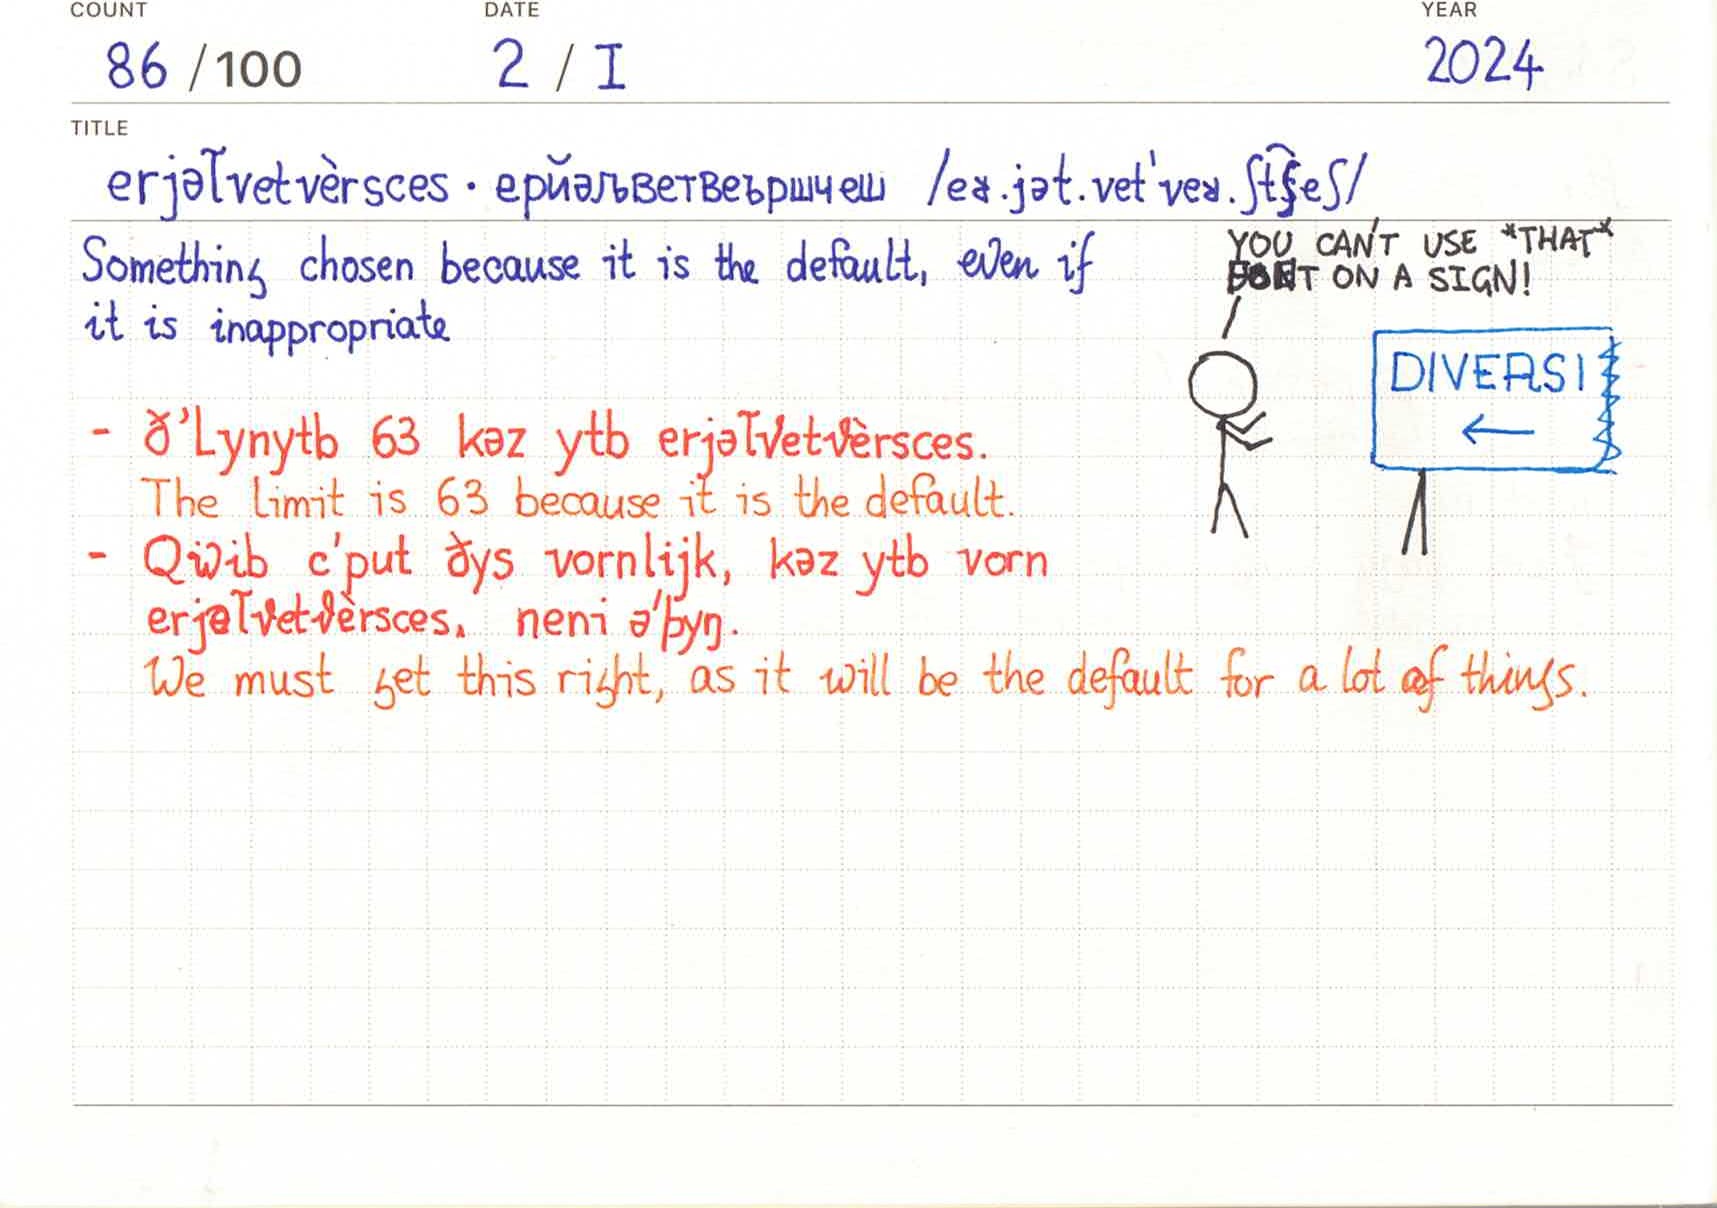 COUNT DATE YEAR
86 /100 2 / I 2024
TITLE
erjəl̆vetvèrsces · ерйәљветвеършчеш /eʁ.jət.vetˈveʁ.ʃt͡ʂeʃ/
Something chosen because it is the default, even if
it is inappropriate
YOU CAN'T USE *THAT*
FONT ON A SIGN!
DIVERSI
←
- ð'Lynytb 63 kəz ytb erjəl̆vetvèrsces.
The limit is 63 because it is the default.
- Qiwib c'put ðys vornlijk, kəz ytb vorn
erjəl̆vetvèrsces, neni ə'þyŋ.
We must get this right, as it will be the default for a lot of things.